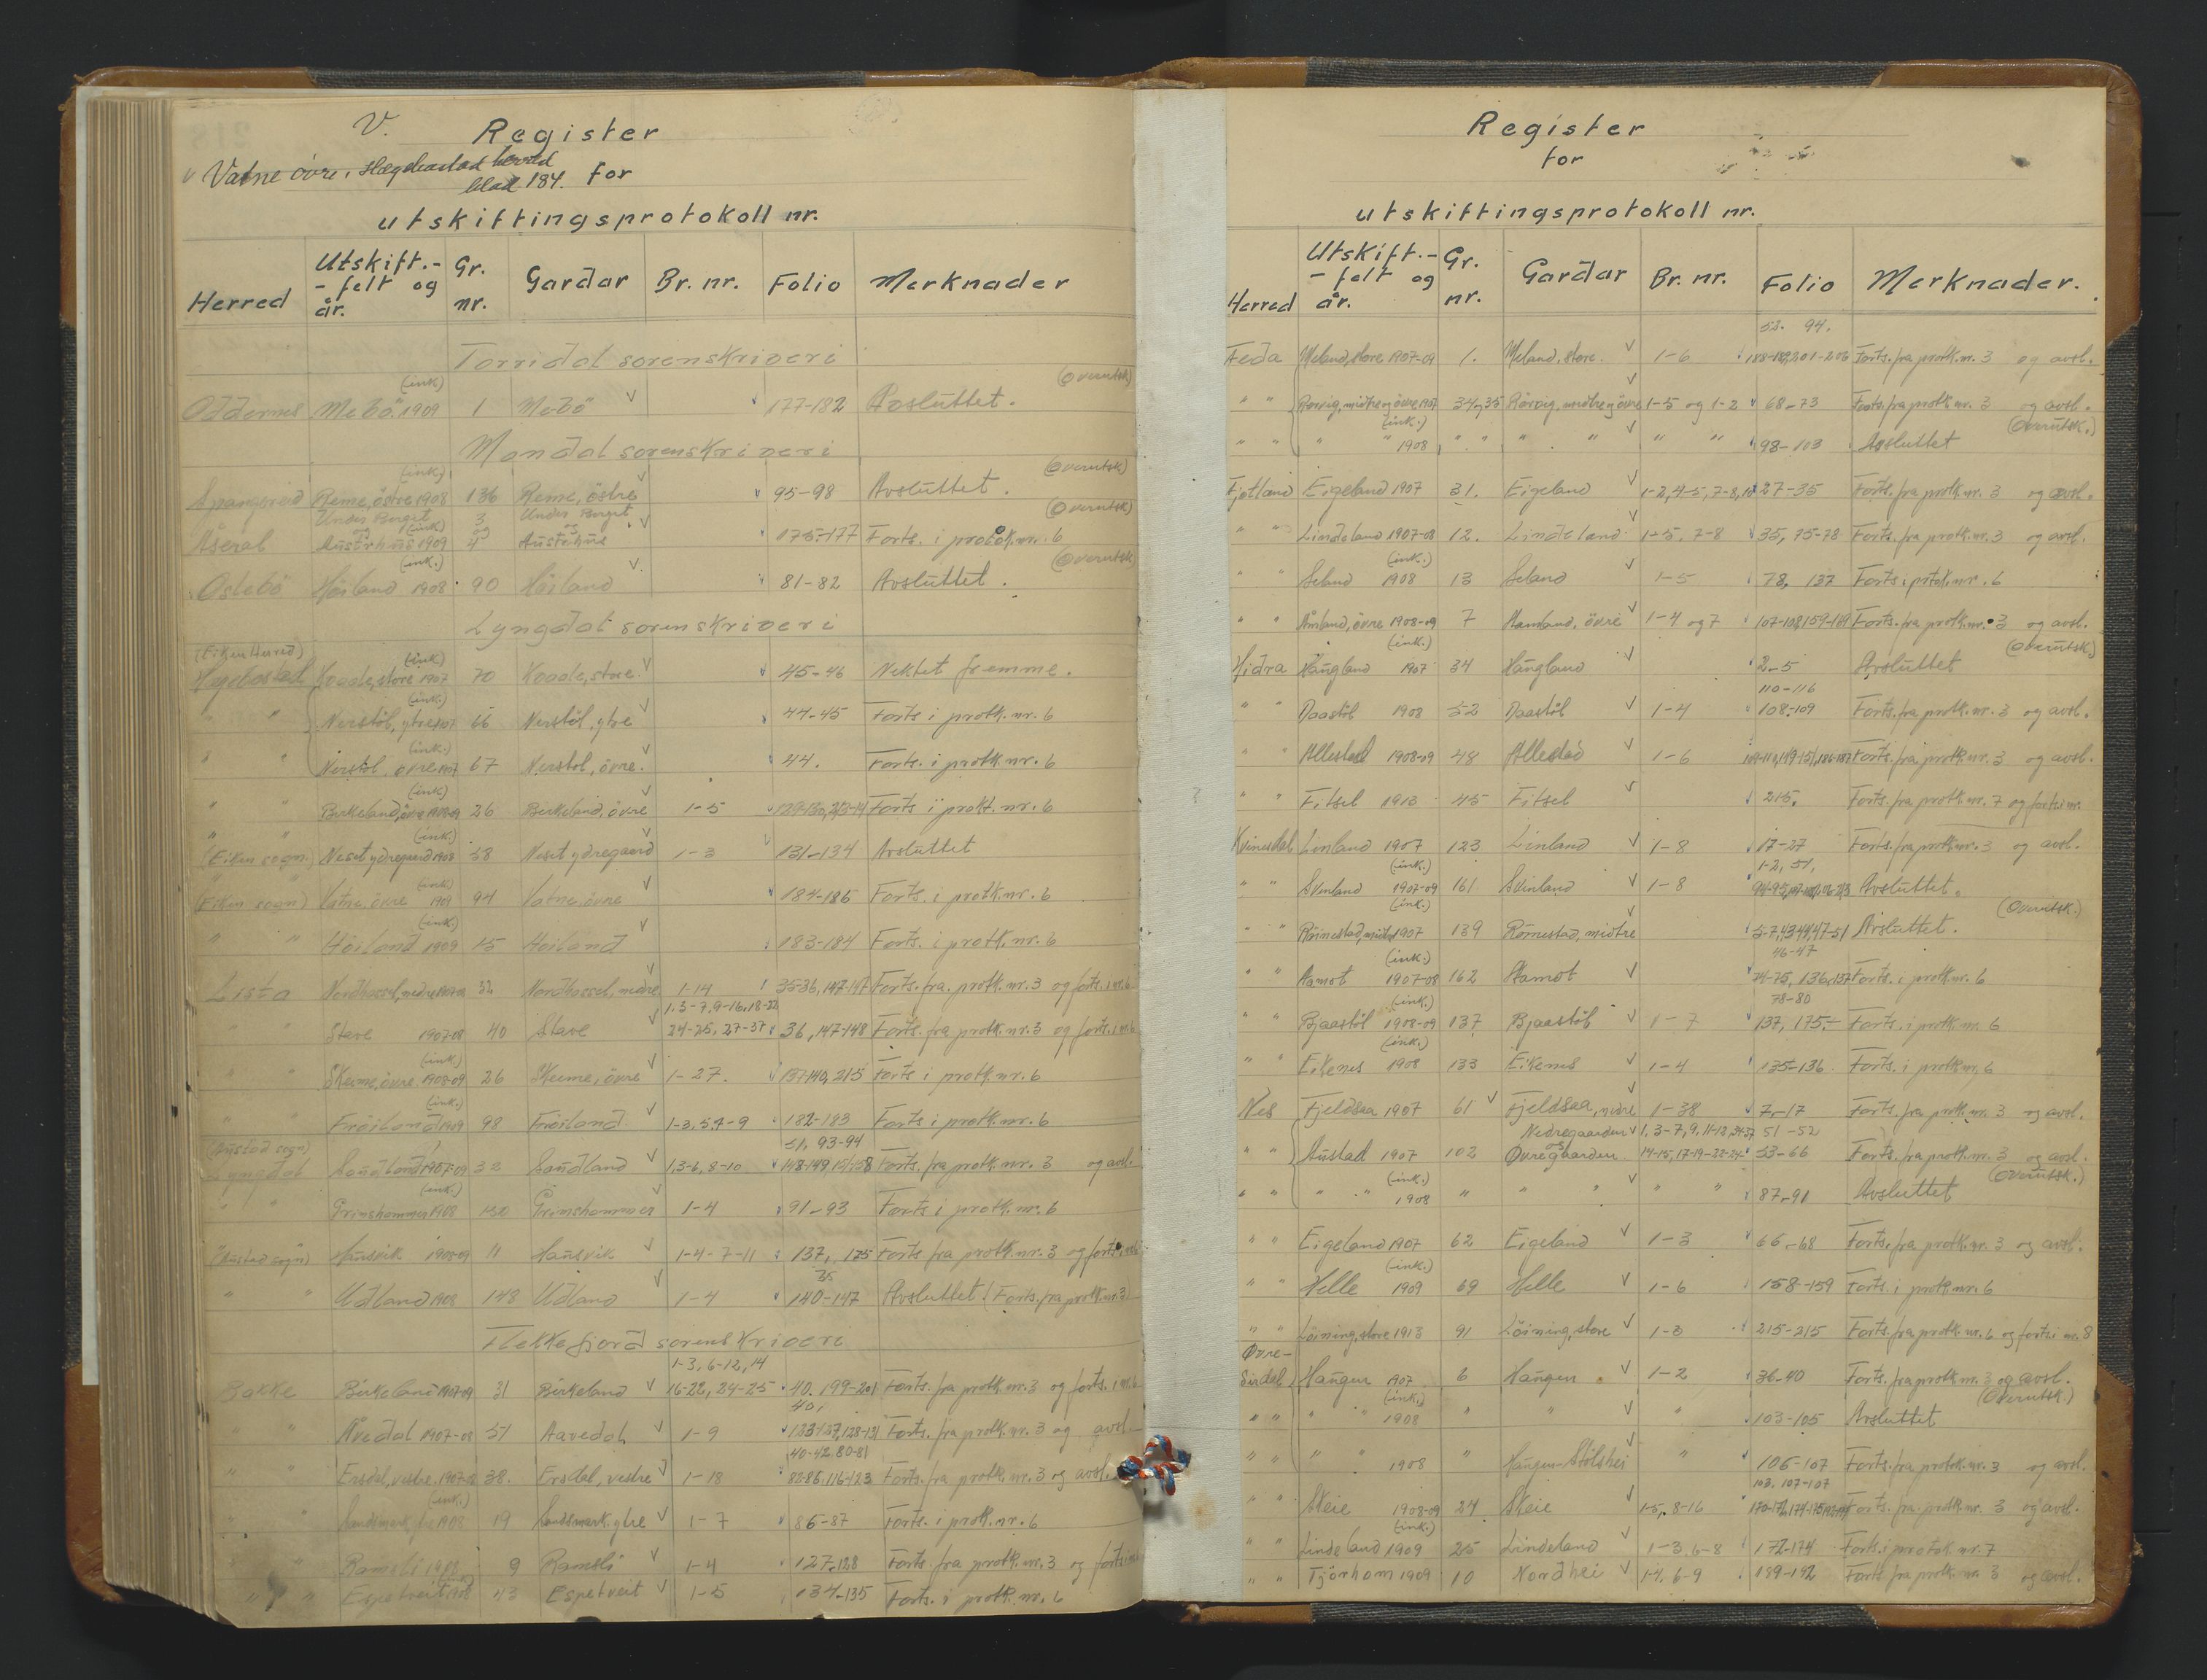 V. Register
Vatne övre, Hægebostad herred
blad 184. for
utskiftingsprotokoll nr.
Herred Utskift.-felt og år. Gr. nr. Gardar Br. nr. Folio Merknader
Torridal sorenskriveri
Oddernes Mebö 1909 (ink) 1 Mebö 177-182 Avsluttet. (Overutsk)
Mandal sorenskriveri
Spangereid Reme, östre 1908 (ink.) 136 Reme, östre 95-98 Avsluttet. (Overutsk)
Åseral Under Berget og Austrhus 1909 (ink) 3 og 4 Under Berget og 175-177 Forts. i protok. nr. 6 (Overutsk)
Öslebö Höiland 1908 (ink.) 90 Höiland 81-82 Avsluttet. (Overutsk)
Lyngdal sorenskriveri
(Eiken Herred)
Hægebostad Koade, store 1907 (ink) 70 Koade, store 45-46 Nektet fremme.
" " Nerstöl, ytre 1907 (ink.) 66 Nerstöl, ytre 44-45 Forts i protk. nr. 6
" " Nerstöl, övre 1907 (ink.) 67 Nerstöl, övre. 44. Forts. i protk. nr. 6
" " Birkeland, övre 1908-09 (ink) 26 Birkeland, övre 1-5 129-130, 213-14 Forts i protk. nr. 6
" " (Eiken sogn.) Neset ydregaard 1908 (ink.) 58 Neset ydregaard 1-3 131-134 Avsluttet
" " (Eiken sogn) Vatne, övre 1909 (ink) 94 Vatne, övre 184-186 Forts. i protk. nr. 6
" " Höiland 1909 (ink.) 15 Höiland 183-184 Forts. i protk. nr. 6
Lista Nordhassel, nedre 32 Nordhassel, nedre 1-14 35-36, 147-147 Forts. fra. protk. nr. 3 og forts. i nr. 6
1, 3-7, 9-16, 18-22
" " Stave 1907-08 40 Stave 24-25, 27-37 36, 147-148 Forts. fra protk. nr. 3 og forts. i nr. 6
" " Skeime, övre 1908-09 (ink.) 26 Skeime, övre 1-27. 137-140, 215 Forts i protk. nr. 6
" " Fröiland 1909 (ink.) 98 Fröiland. 1-3, 5, 7-9 182-183 Forts i protk. nr. 6
(Austad sogn) 51, 93-94
Lyngdal Sandland 1907-09 32 Sandland 1,3-6, 8-10 148-149, 151-158 Forts. fra protk. nr. 3 og avsl.
" " Grimshammer 1908 (ink.) 130 Grimshammer 1-4 91-93 Forts i protk. nr. 6
(Austad sogn) Hausvik 1908-09 11 Hausvik 1-4-7-11 137, 175 Forts fra protk. nr. 3 og forts.
35
" " Udland 1908 148 Udland 1-4 140-147 Avsluttet (Forts. fra protk. nr. 3)
Flekkefjord sorenskriveri
1-3, 6-12, 14
Bakke Birkeland 1907-09 31 Birkeland 16-22, 24-25 40. 199-201 Forts. fra protk. nr. 3 og forts. i nr. 6
40,
" " Åvedal 1907-08 51 Aavedal 1-9 123-127, 128-131 Forts. fra protk. nr. 3 og avsl.
40-42, 80-81
" " Ersdal, vestre, 1907-08 38. Ersdal, vestre 1-18 82-86, 116-123 Forts. fra protk. nr. 3 og avsl.
" " 1908 (ink.) 19 Sandsmark, ytre 1-7 86-87 Forts. i protk. nr. 6
" " Ramsli 1908 9 Ramsli 1-4 127, 128 Forts. fra protk. nr. 3 og forts i
" " Espetveit 1908 43 Espetveit 1-5 134-135 Forts. i protk. nr. 6
Register
for
utskiftingsprotokoll nr.
Herred Utskift.-felt og år. Gr. nr. Gardar Br. nr. Folio Merknader.
52. 94.
Feda Meland, store 1907-09 1. Meland, store. 1-6 188-189, 201-206 Forts. fra protk. nr. 3 og avsl.
" " Rørvig, midtre og övre 1907 34 og 35 Rörvig, midtre og övre 1-5 og 1-2 68-73 Forts. fra protk. nr. 3 og avsl.
" " " " 1908 (ink.) " " " " " " 98-103 Avsluttet (Overutsk.)
Fjotland Eigeland 1907 31. Eigeland 1-2, 4-5, 7-8, 10 27-35 Forts. fra protk. nr. 3 og avsl.
" " Lindeland 1907-08 12. Lindeland 1-5, 7-8 35, 75-78 Forts. fra protk. nr. 3 og avsl.
" " Seland 1908 (ink.) 13 Seland 1-5 78, 137 Forts i protok. nr. 6
" " Aamland, övre 1908-09 7 Aamland, övre 1-4 og 7 107-108, 159-169 Forts. fra protk. nr. 3 og avsl.
Hidra Haugland 1907 (ink.) 34 Haugland 2-5 Avsluttet (Overutsk.)
110-116
" " Daastöl 1908 52 Daastöl 1-4 108-109 Forts. fra protk. nr. 3 og avsl.
" " Allestad 1908-09 48 Allestad 1-6 109-110, 149-151, 186-187 Forts. fra protk. nr. 3 og avsl.
" " Fitsel 1913 45 Fitsel 215. Forts. fra protk. nr. 7 og forts i nr.
Kvinesdal Linland 1907 123 Linland 1-8 17-27 Forts. fra protk. nr. 3 og avsl.
1-2, 51,
" " Svinland 1907-09 (ink.) 161 Svinland 1-8 Avsluttet.
" " Römestad, midtre 1907 (ink.) 139 Römestad, midtre 5-7, 43-44, 47-51 Avsluttet. (Overutsk.)
46-47
" " Aamot 1907-08 (ink.) 162 Aamot 74-75, 136, 137 Forts. i protk. nr. 6
78-80
" " Bjaastöl 1908-09 (ink.) 137 Bjaastöl 1-7 137, 175,- Forts. i protk. nr. 6
" " Eikenes 1908 (ink.) 133 Eikenes 1-4 135-136 Forts. i protk. nr. 6
Nes Fjeldsaa 1907 61 Fjeldsaa, nedre 1-38 7-17 Forts. fra protk. nr. 3 og avsl.
Nedregaarden 1, 3-7, 9, 11-13, 34-37 51-52
" " Austad 1907 102 og Øvregaarden 14-15, 17-19-22-24- 53-66 Forts. fra protk. nr. 3 og avsl.
" " " " 1908 (ink.) " " " " " 87-91 Avsluttet (Overutsk.)
" " Eigeland 1907 62 Eigeland 1-3 66-68 Forts. fra protk. nr. 3 og avsl.
" " Helle 1909 (ink.) 69 Helle 1-6 158-159 Forts. i protk. nr. 6
" " Löining, store 1913 91 Löining, store 1-3 215-215 Forts. fra protk. nr. 6 og forts. i nr. 8
Øvre-
Sirdal Haugen 1907 6 Haugen 1-2 36-40 Forts. fra protk. nr. 3 og avsl.
" " " " 1908 (ink.) " " " 103-105 Avsluttet (Overutsk.)
" " " " 1908 " Haugen-Stölshei " 106-107 Forts. fra protok. nr. 3 og avsl.
103, 107-107
" " Skeie 1908-09 24 Skeie 1-5, 8-16 Forts. fra protk. nr. 3 og avsl.
" " Lindeland 1909 (ink.) 25 Lindeland 1-3, 6-8 172-174 Forts. i protok nr. 7
" " Tjörhom 1909 10 Nordhei 1-4, 6-9 189-192 Forts fra protk. nr. 3 og avsl.